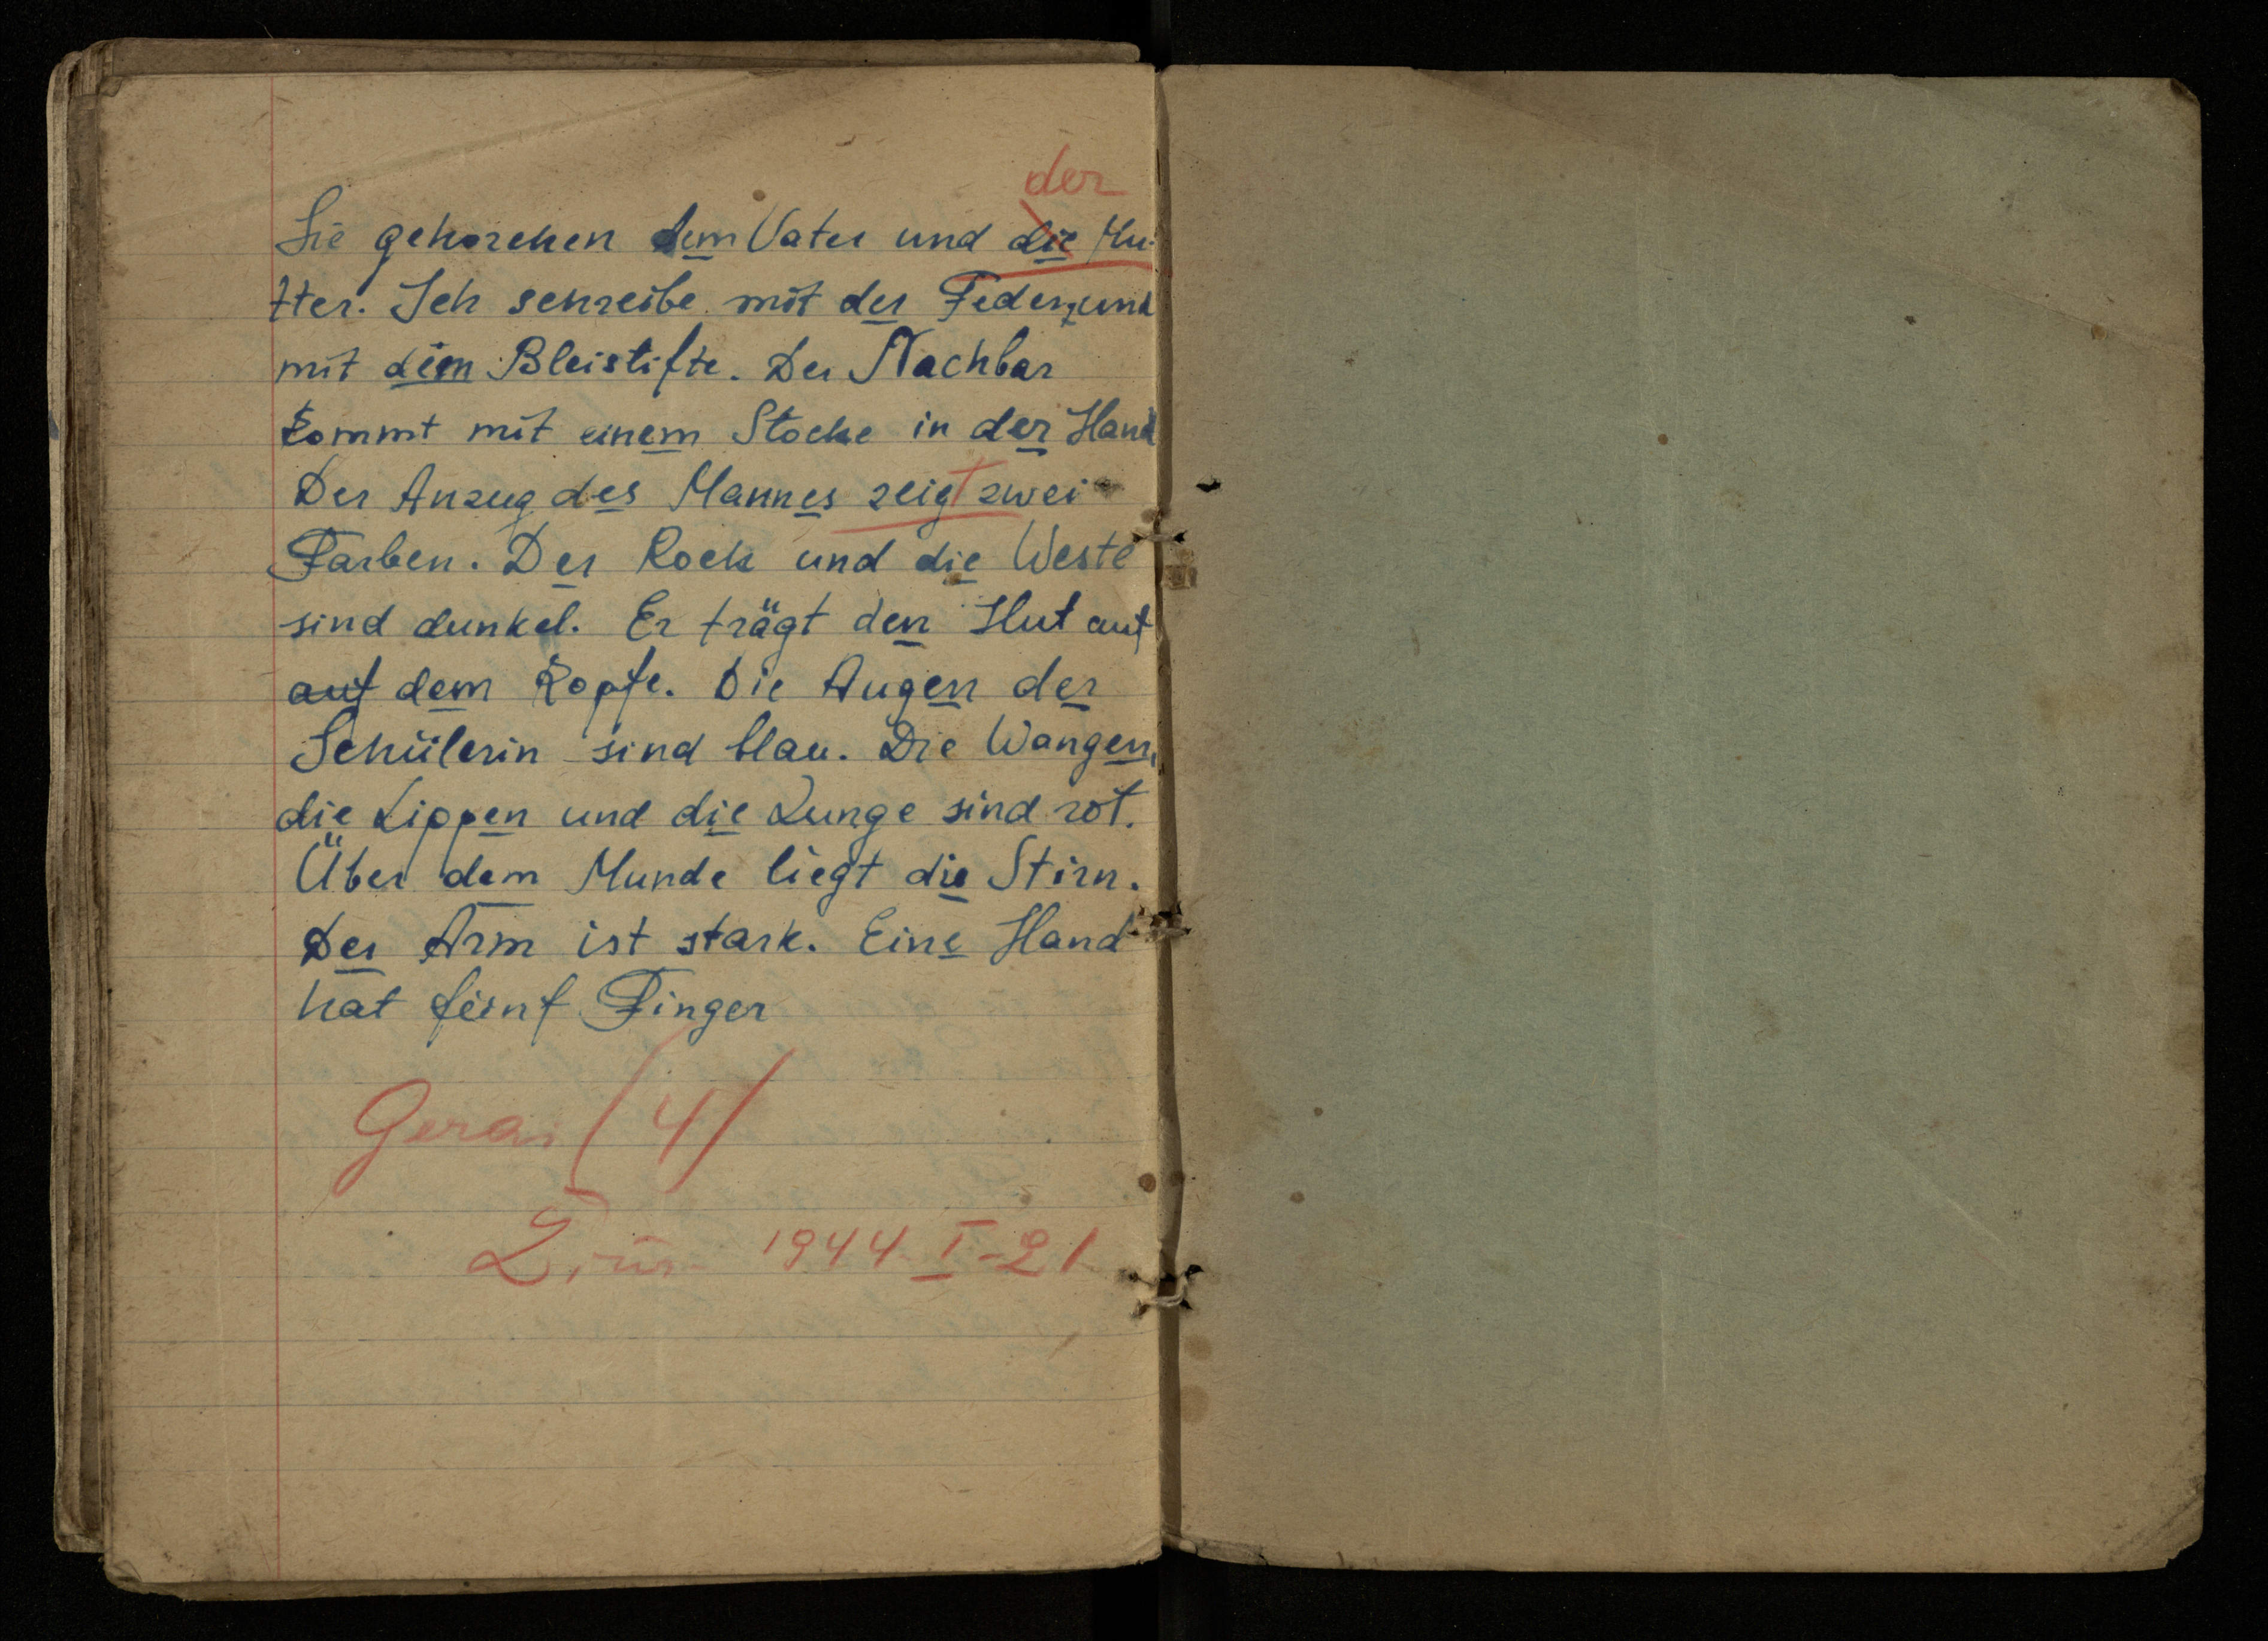 der
Sie gehorchen dem Vater und die Mu-
tter. Ich schreibe mit der Feder, und
mit dem Bleistifte. Der Nachbar
kommt mit einem Stocke in der Hand
Der Anzug des Mannes zeigt zwei
Farben. Der Rock und die Weste
sind dunkel. Er trägt den Hut auf
auf dem Kopfe. Die Augen der
Schülerin sind blau. Die Wangen,
die Lippen und die Zunge sind rot.
Über dem Munde liegt die Stirn.
Der Arm ist stark. Eine Hand
hat feinf Finger
Gerai (4)
1944 I-21